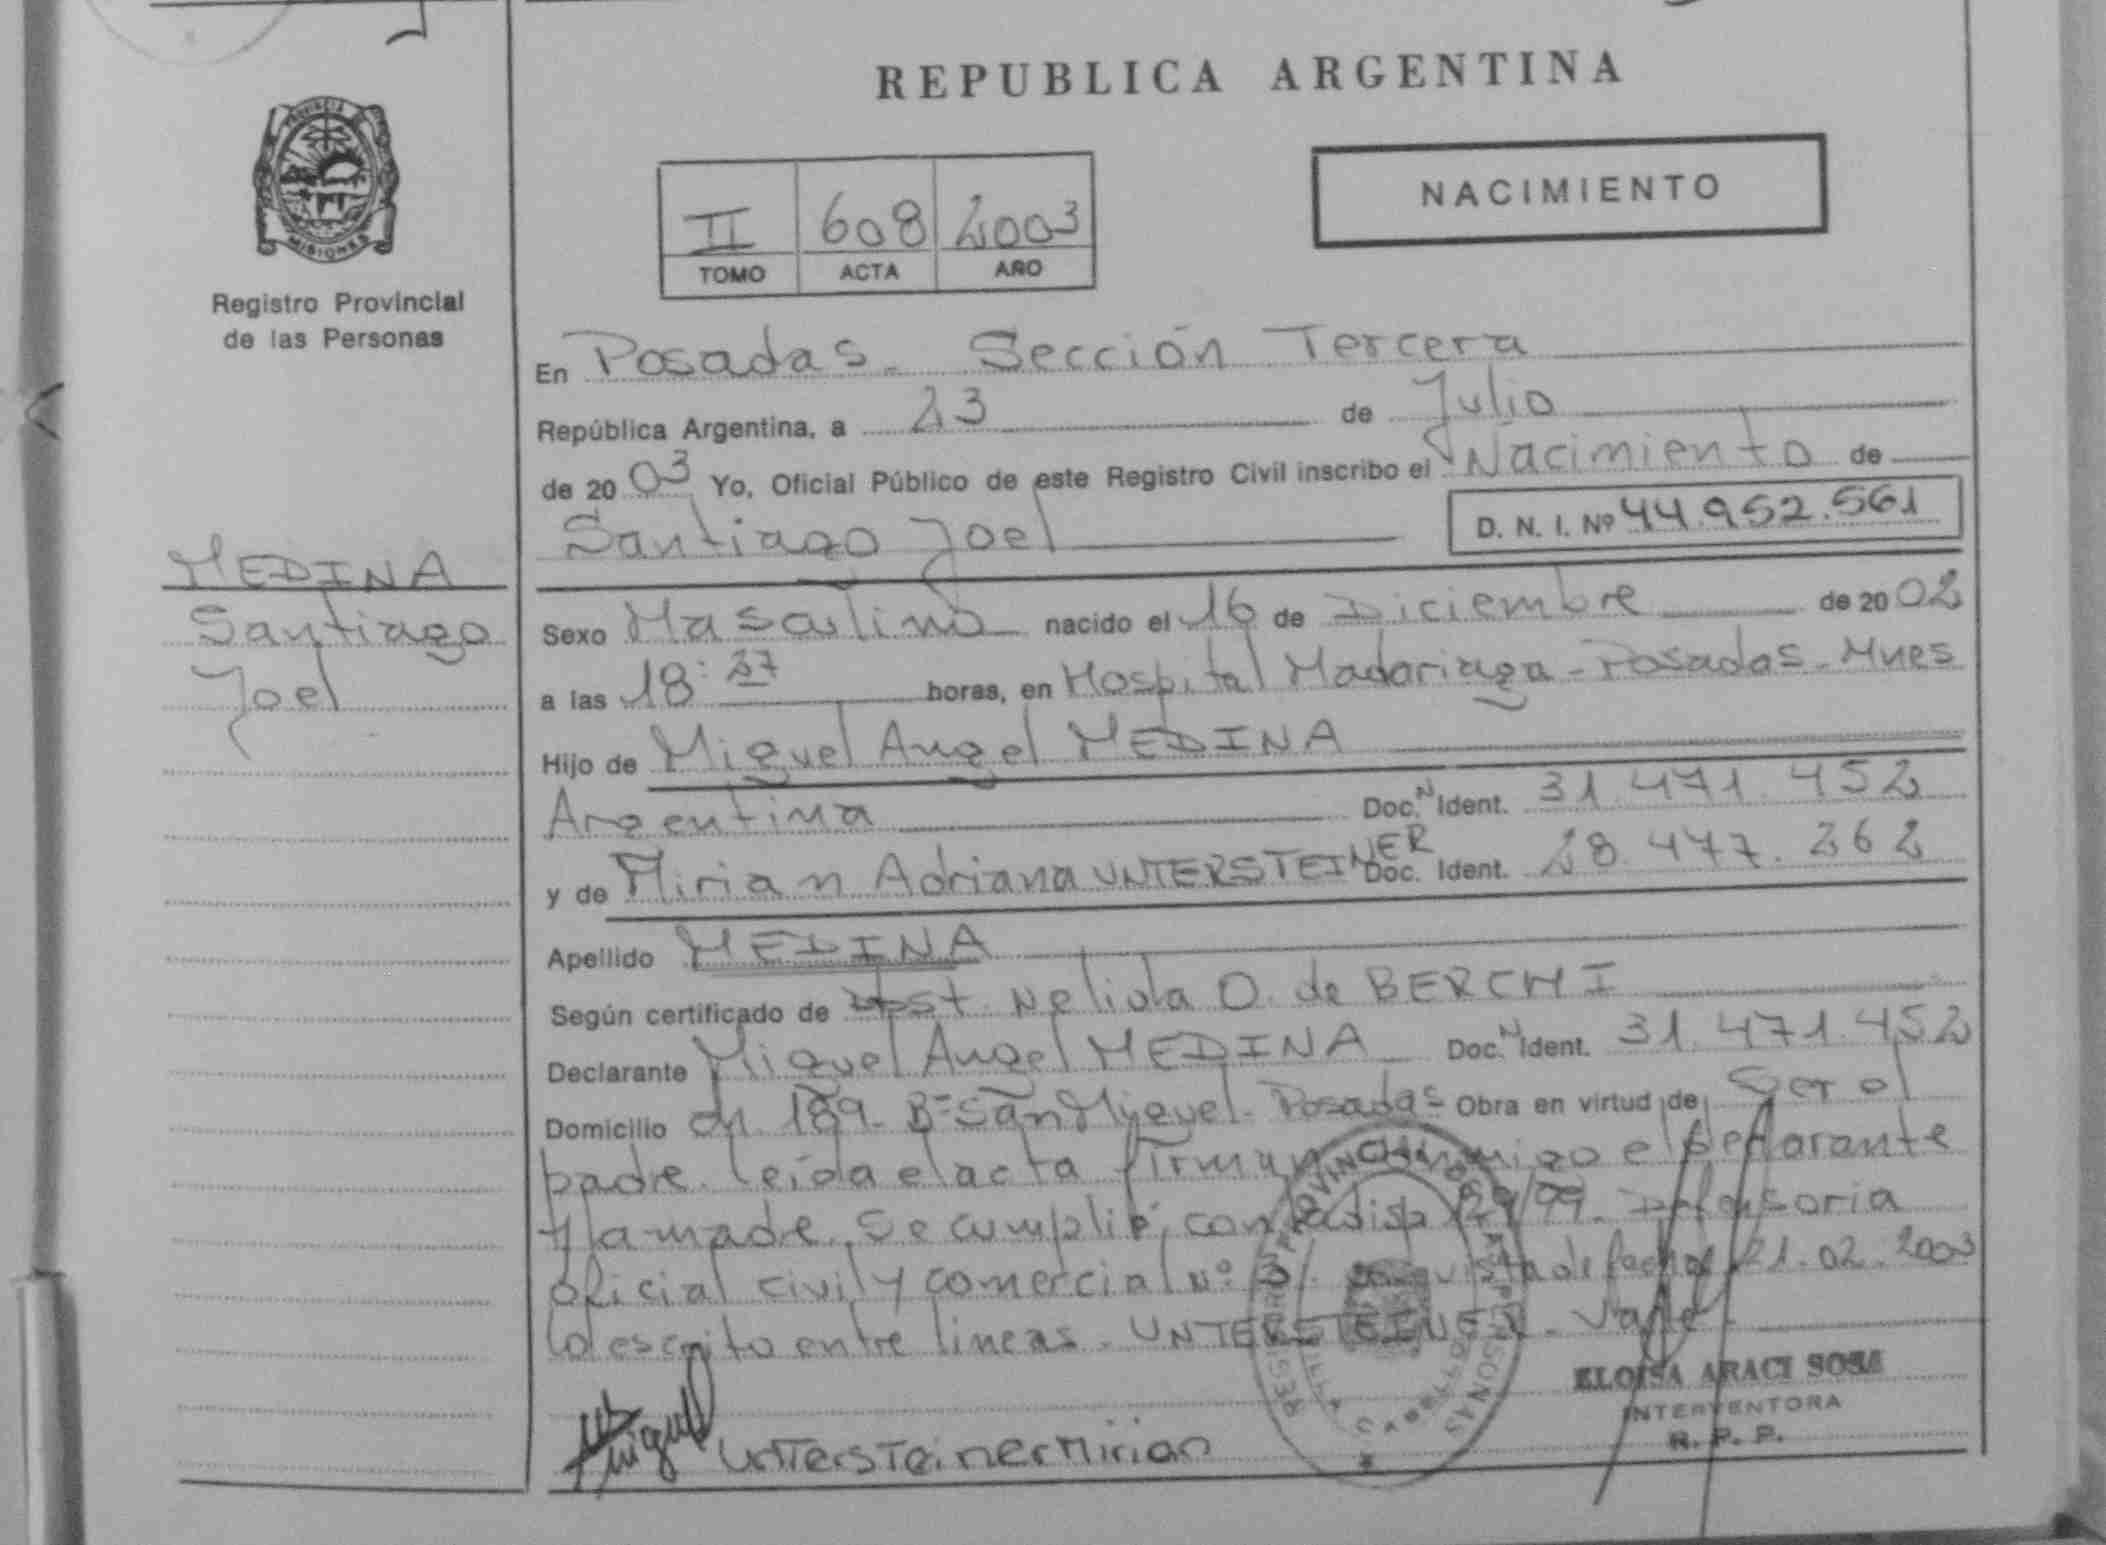 REPUBLICA ARGENTINA
PROVINCIA
MISIONES
Registro Provincial
de las Personas
II 608 2003
TOMO ACTA AÑO
NACIMIENTO
En Posadas - Sección Tercera
República Argentina, a 23 de Julio
de 2003 Yo, Oficial Público de este Registro Civil inscribo el Nacimiento de
Santiago Joel
D. N. I. Nº 44.952.561
MEDINA
Santiago
Joel
Sexo Masculino nacido el 16 de Diciembre de 2002
a las 18:27 horas, en Hospital Madariaga - Posadas - Mnes
Hijo de Miguel Angel MEDINA
Argentina Doc. N Ident. 31.471.452
y de Mirian Adriana UNTERSTEINER Doc. Ident. 28.477.262
Apellido MEDINA
Según certificado de Obst. Nelida O. de BERCHI
Declarante Miguel Angel MEDINA Doc. N Ident. 31.471.452
Domicilio Ch. 189 - Bº San Miguel - Posadas - Obra en virtud de Ser el
padre. leida el acta firman conmigo el declarante
y la madre. Se cumplió con la disp 29/99. Defensoria
oficial civil y comercial Nº 3. vista de fecha 21.02.2003
lo escrito entre lineas - UNTERSTEINER - Vale
ELOISA ARACI SOSA
INTERVENTORA
R. P. P.
Miguel UntersTeiner Mirian